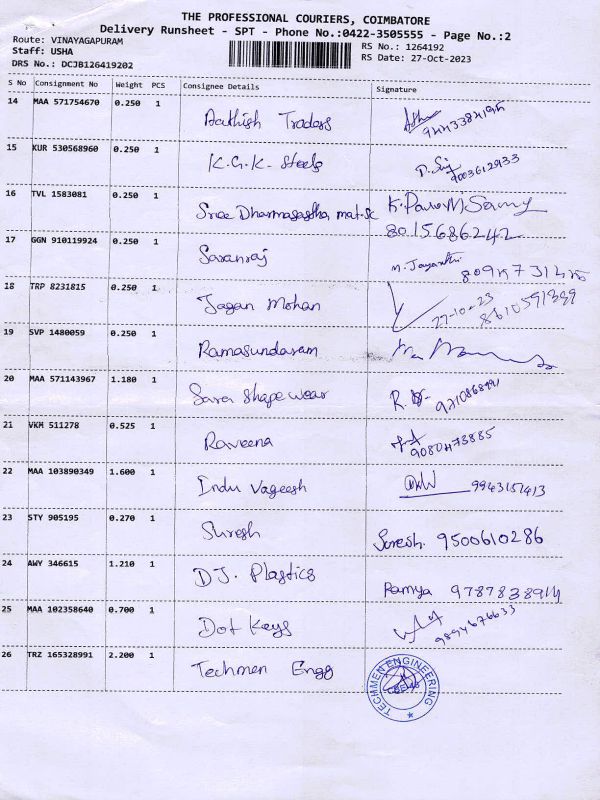 THE PROFESSIONAL COURIERS, COIMBATORE
Delivery Runsheet - SPT - Phone No.:0422-3505555 - Page No.:2
Route: VINAYAGAPURAM
Staff: USHA
DRS No.: DCJB126419202
RS No.: 1264192
RS Date: 27-Oct-2023
S No Consignment No Weight PCS Consignee Details Signature
14 MAA 571754670 0.250 1 Aathish Traders
15 KUR 530568960 0.250 1 K.G.K. Steels 7003612933
16 TVL 1583081 0.250 1 Sree Dharmasastha mat.sc
8015686242
17 GGN 910119924 0.250 1 Saranraj M. Jayanthi
18 TRP 8231815 0.250 1 Jagan Mohan 27-10-23
19 SVP 1480059 0.250 1 Ramasundaram
20 MAA 571143967 1.180 1 Sara Shape wear
21 VKM 511278 0.525 1 Raveena
22 MAA 103890349 1.600 1 Indu Vageesh 9943151413
23 STY 905195 0.270 1 Suresh Suresh. 9500610286
24 AWY 346615 1.210 1 D.J. Plastics Ramya
25 MAA 102358640 0.700 1 Dot Keys 9894676633
26 TRZ 165328991 2.200 1 Techmen Engg TECHMEN ENGINEERING